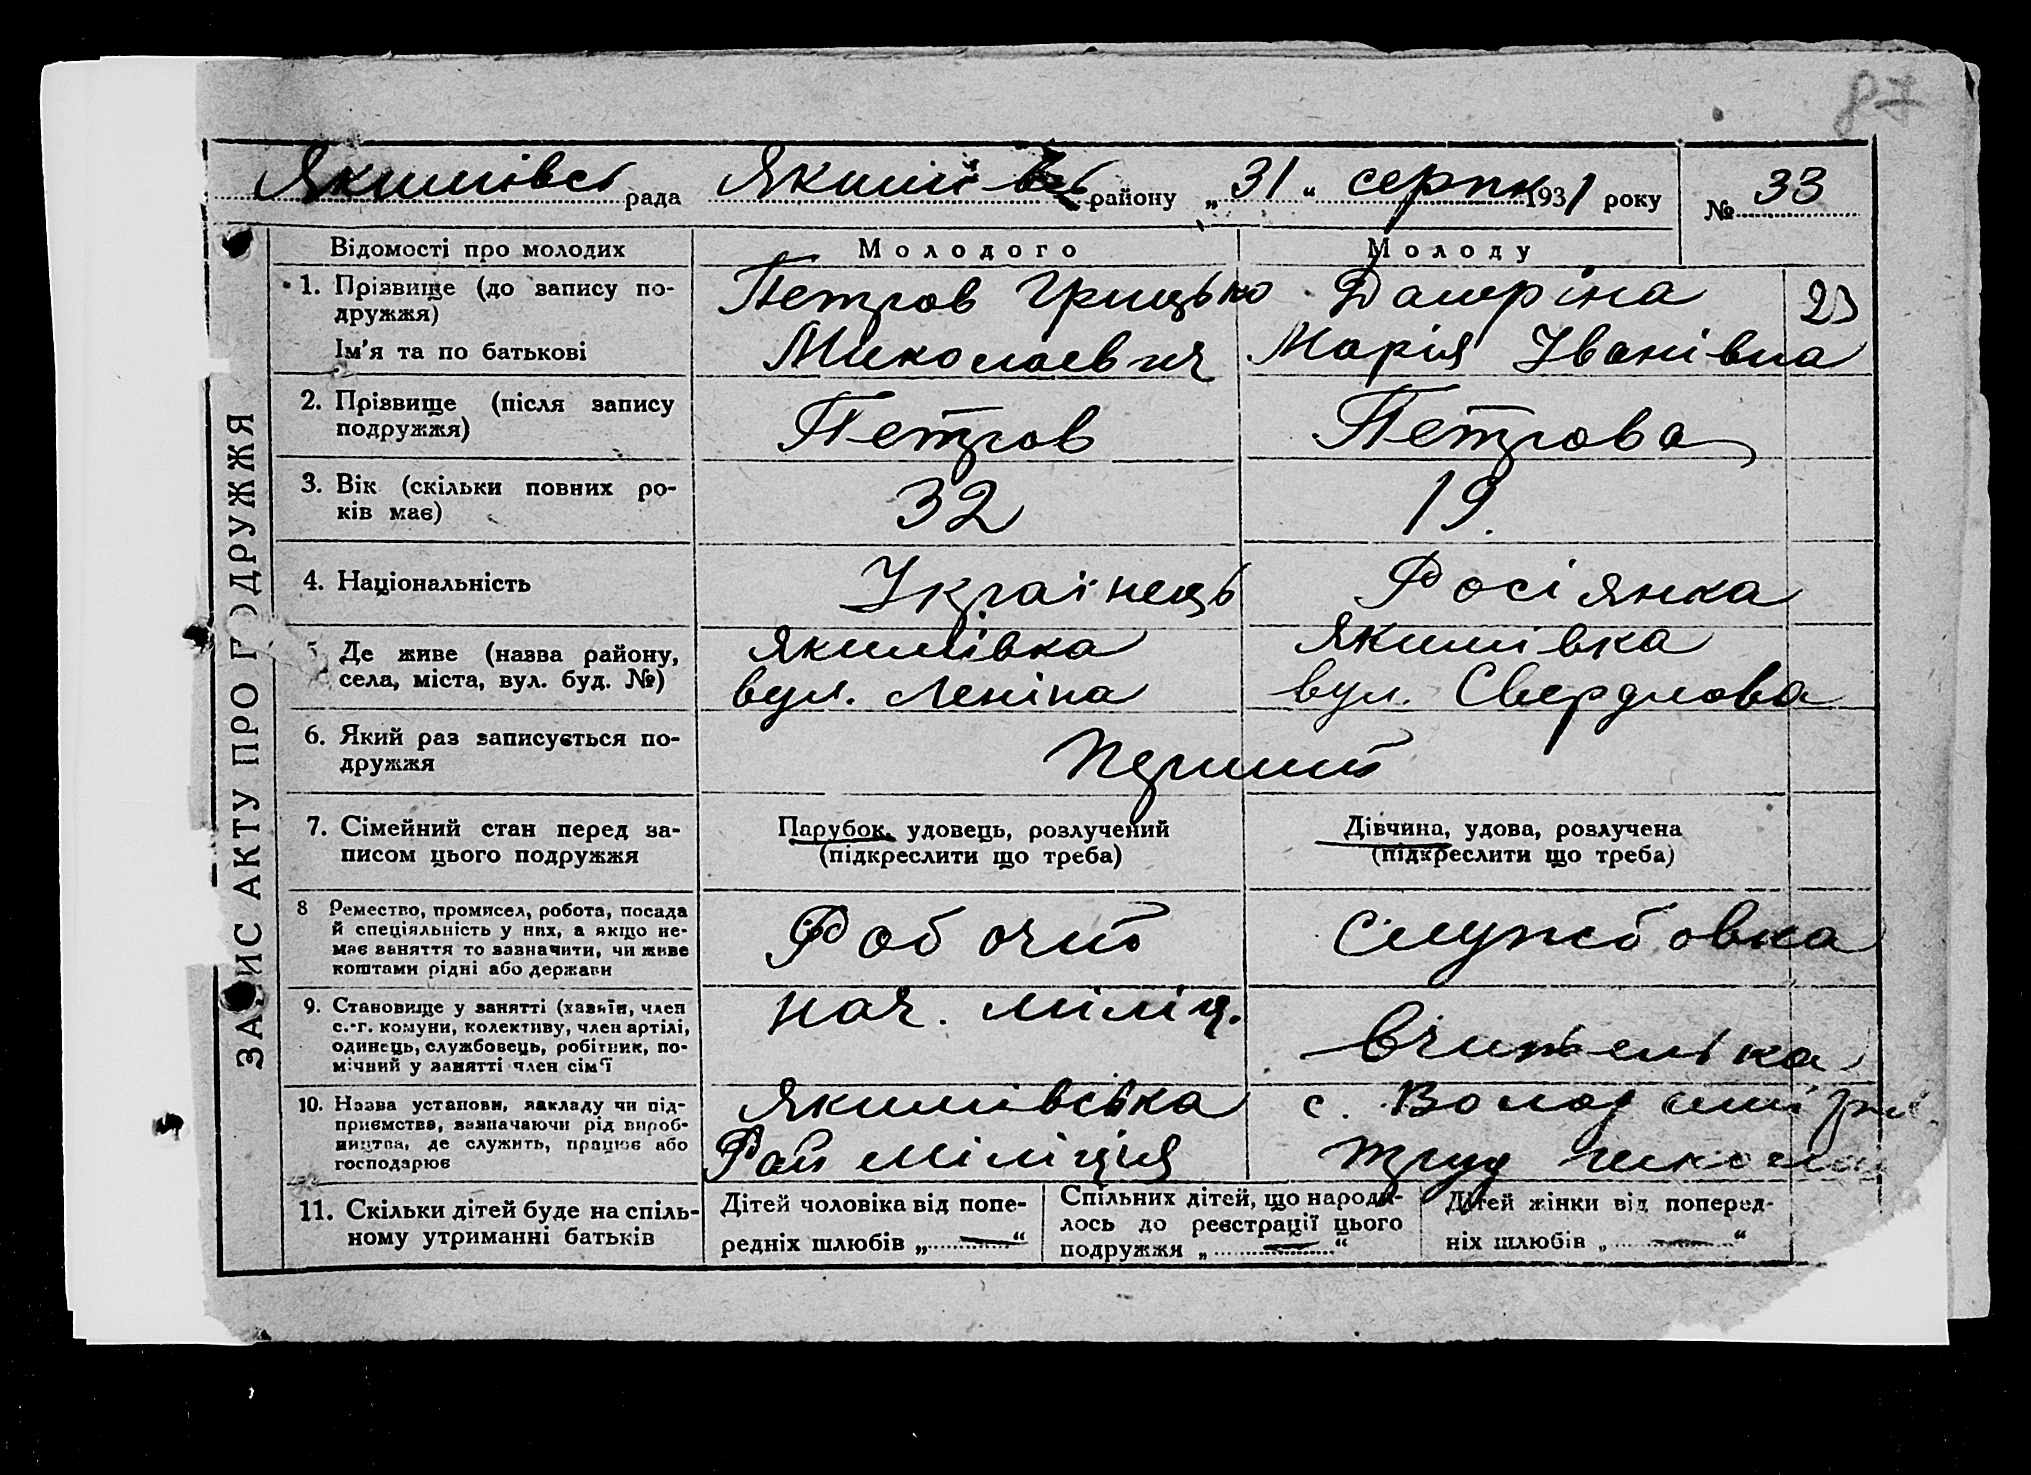 87
Якимівсь рада Якимів району „31“ серпн 1931 року № 33
ЗАПИС АКТУ ПРО ПОДРУЖЖЯ
Відомості про молодих Молодого Молоду
1. Прізвище (до запису по- Петров Грицько 23
дружжя)
Ім'я та по батькові Миколаевич Марія Іванівна
2. Прізвище (після запису Петров Петрова
подружжя)
3. Вік (скільки повних ро- 32 19.
ків має)
4. Національність Українець Росіянка
5. Де живе (назва району, Якимівка Якимівка
села, міста, вул. буд. №) вул. Леніна вул. Свердлова
6. Який раз записується по- перший
дружжя
7. Сімейний стан перед за- Парубок, удовець, розлучений Дівчина, удова, розлучена
писом цього подружжя (підкреслити що треба) (підкреслити що треба)
8 Ремество, промисел, робота, посада
й спеціяльність у них, а якщо не- Робочий Службовка
має заняття то зазначити, чи живе
коштами рідні або держави
9. Становище у занятті (хазяїн, член нач. міліц.
с.-г. комуни, колективу, член артілі,
одинець, службовець, робітник, по- вчителька
мічний у занятті член сім'ї
10. Назва установи, закладу чи під- Якимівська с.
приємства, зазначаючи рід вироб-
ництва, де служить, працює або Рай міліція труд школа
господарює
11. Скільки дітей буде на спіль-
ному утриманні батьків
Дітей чоловіка від попе-
редніх шлюбів „—“
Спільних дітей, що народи-
лось до реєстрації цього
подружжя „—“
Дітей жінки від поперед-
ніх шлюбів „—“